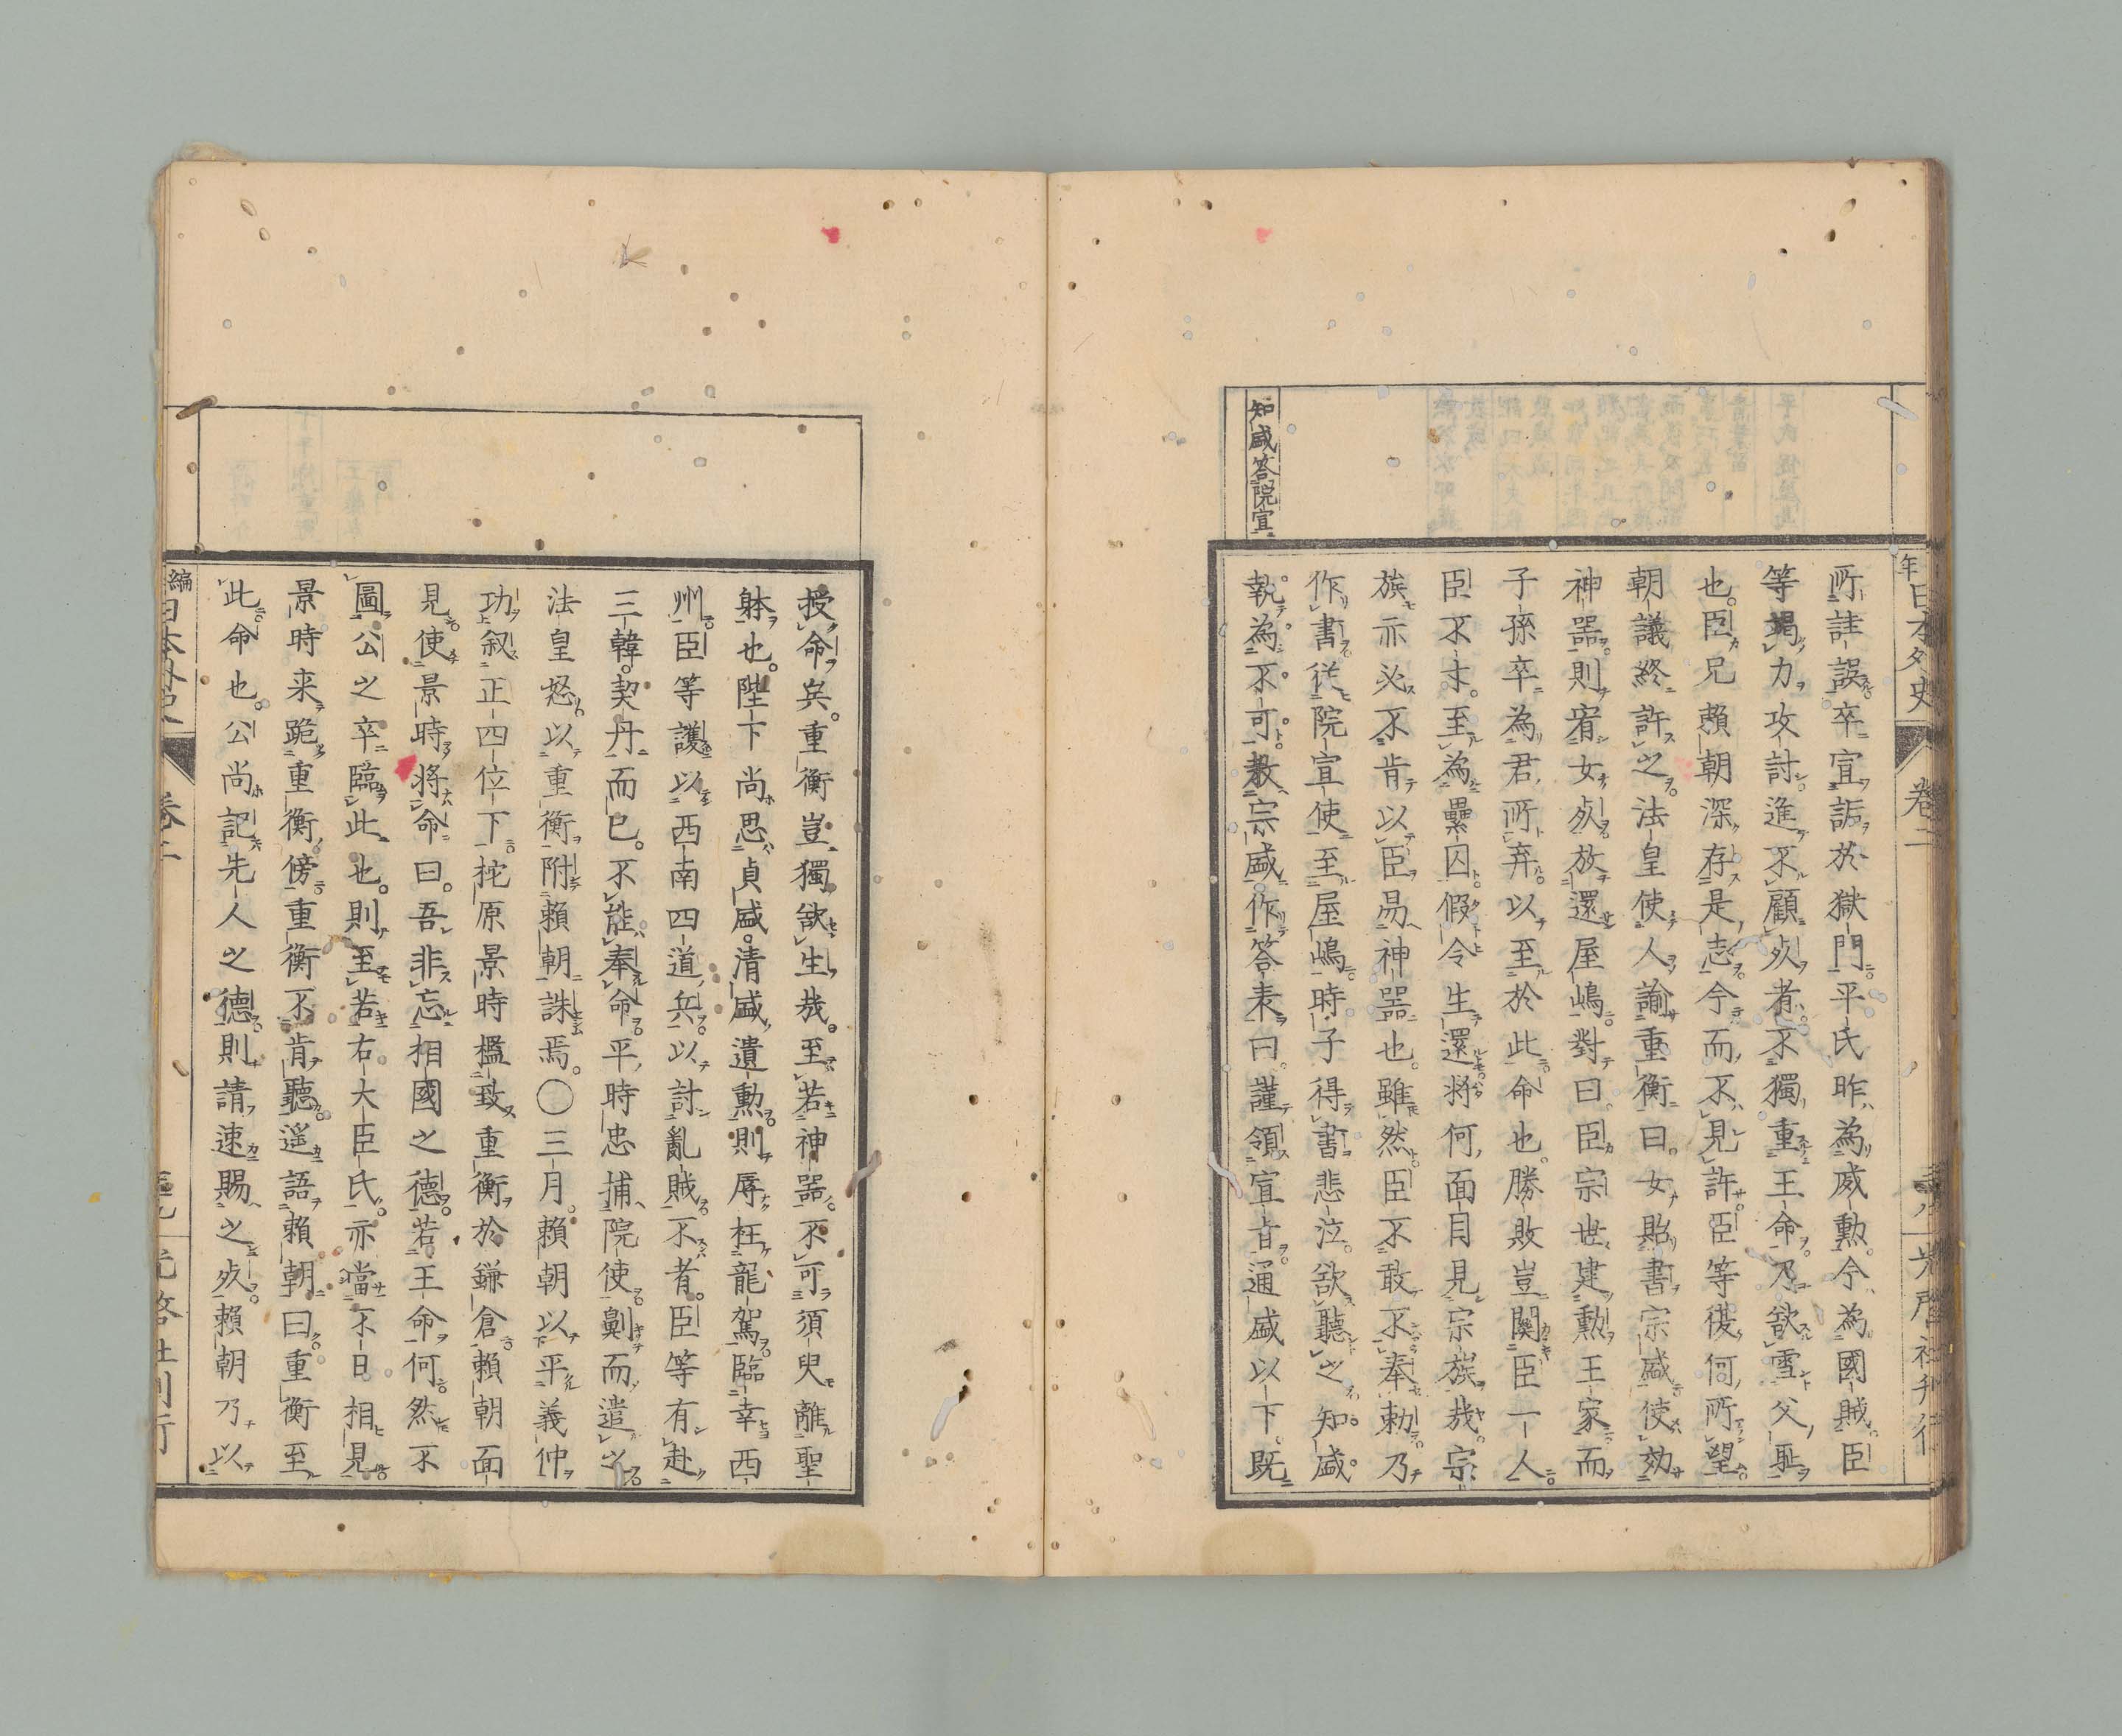 年日本外史 卷二 光啓社刊行
知盛答院宣
所詿誤卒宣詬於獄門平氏昨為威勲今為國賊臣
等竭力攻討進不顧死者不獨重王命乃欲雪父恥
也臣兄賴朝深存是志今而不見許臣等復何所望
朝議終許之法皇使人諭重衡曰女貽書宗盛使効
神器則宥女死放還屋嶋對曰臣宗世建勲王家而
子孫卒為君所弃以至於此命也勝敗豈關臣一人
臣不才至為纍囚假令生還將何面目見宗族哉宗
族亦必不肯以臣易神器也雖然臣不敢不奉勅乃
作書從院宣使至屋嶋時子得書悲泣欲聽之知盛
執為不可教宗盛作答表曰謹領宣旨通盛以下既
授命兵重衡豈獨欲生哉至若神器不可須臾離聖
躰也陛下尚思貞盛清盛遺勲則辱枉龍駕臨幸西
州臣等護以西南四道兵以討亂賊不者臣等有赴
三韓契丹而已不能奉命平時忠捕院使劓而遣以
法皇怒以重衡附賴朝誅焉〇三月賴朝以平義仲
功叙正四位下梶原景時檻致重衡於鎌倉賴朝面
見使景時將命曰吾非忘相國之德若王命何然不
圖公之卒臨此也則至若右大臣氏亦當不日相見
景時来跪重衡傍重衡不肯聽遥語賴朝曰重衡至
此命也公尚記先人之德則請速賜之死賴朝乃以
編 日本外史 卷二 光啓社刊行